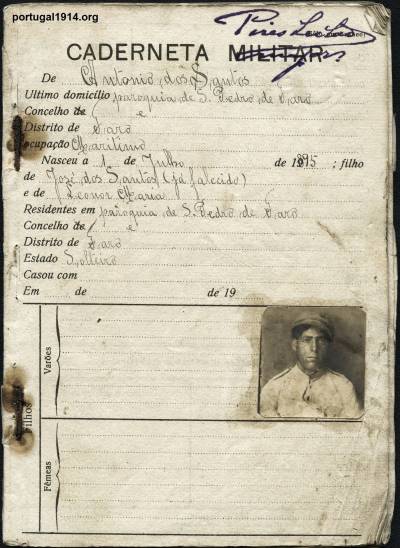 portugal1914.org
Pires
CADERNETA MILITAR
De António dos Santos
Ultimo domicílio paroquia de S. Pedro de Faro
Concelho de e
Distrito de Faro
Ocupação Marítimo
Nasceu a 1 de Julho de 1895 ; filho
de José dos Santos (já falecido)
e de Leonor Maria
Residentes em paroquia de S. Pedro de Faro
Concelho de e
Distrito de Faro
Estado Solteiro
Casou com
Em de de 19
Filhos
Varões
Fêmeas